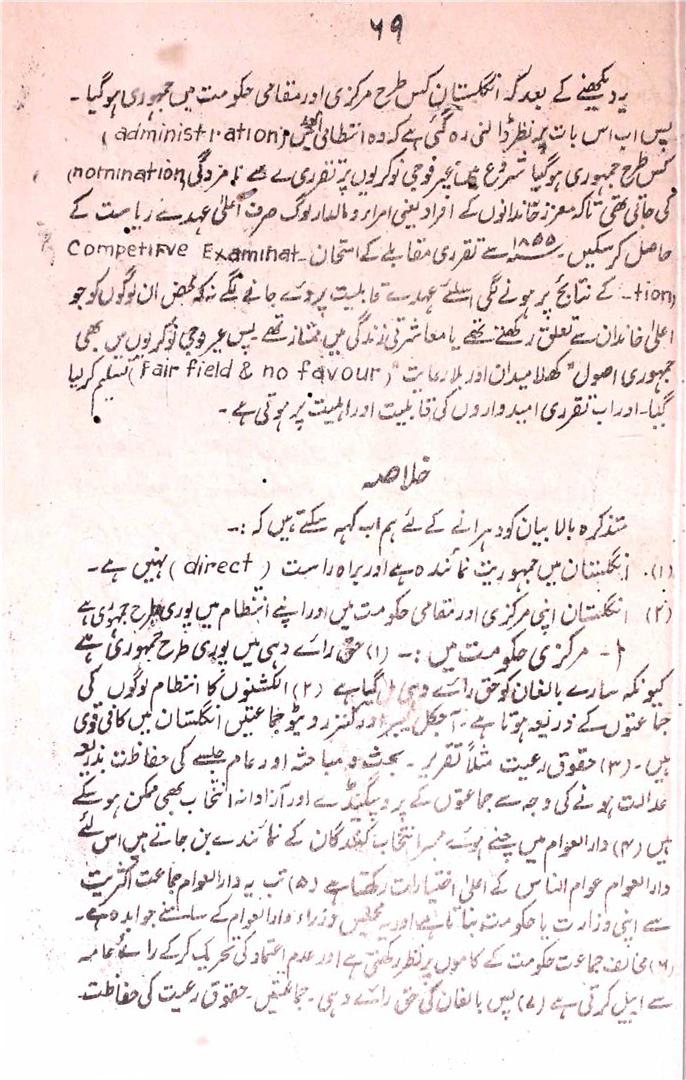 ۶۹
یہ دیکھنے کے بعد کہ انگلستان کس طرح مرکزی اور مقامی حکومت میں جمہوری ہوگیا۔
پس اب اس بات پر نظر ڈالنی رہ گئی ہے کہ وہ انتظامی (administration)
کس طرح جمہوری ہوگیا شروع میں غیر فوجی نوکریوں پر تقرری نامزدگی (nomination)
کی جاتی تھی تاکہ معزز خاندانوں کے افراد یعنی امراء و مالدار لوگ صرف اعلیٰ عہدے ریاست کے
حاصل کرسکیں۔ ۱۸۵۵ سے تقرری مقابلے کے امتحان Competitive Examinat-
tion- کے نتائج پر ہونے لگی اسلئے عہدے قابلیت پر دئے جانے لگے نہ کہ محض ان لوگوں کو جو
اعلیٰ خاندان سے تعلق رکھتے تھے یا معاشرتی زندگی میں ممتاز تھے پس غیر فوجی نوکریوں میں بھی
جمہوری اصول "کھلا میدان اور بلا رعایت" (Fair field & no favour) تسلیم کرلیا
گیا۔ اور اب تقرری امیدواروں کی قابلیت اور اہلیت پر ہوتی ہے۔
خلاصہ
متذکرہ بالا بیان کو دہرانے کے لئے ہم اب کہہ سکتے ہیں کہ :۔
(۱)۔ انگلستان میں جمہوریت نمائندہ ہے اور براہ راست (direct) نہیں ہے۔
(۲) انگلستان اپنی مرکزی اور مقامی حکومت میں اور اپنے انتظام میں پوری طرح جمہوری ہے
۱۔ مرکزی حکومت میں :۔ (۱) حق رائے دہی میں پوری طرح جمہوری ہے
کیونکہ سارے بالغان کو حق رائے دہی مل گیا ہے (۲) الکشنوں کا انتظام لوگوں کی
جماعتوں کے ذریعہ ہوتا ہے۔ آجکل لیبر اور کنزرویٹو جماعتیں انگلستان میں کافی قوی
ہیں۔ (۳) حقوق رعیت مثلاً تقریر۔ بحث و مباحثہ اور عام جلسے کی حفاظت بذریعہ
عدالت ہونے کی وجہ سے جماعتوں کے پروپیگنڈے اور آزادانہ انتخاب بھی ممکن ہوسکے
ہیں (۴) دارالعوام میں چنے ہوئے ممبر انتخاب کنندگان کے نمائندے بن جاتے ہیں اس لئے
دارالعوام عوام الناس کے اعلیٰ اختیارات رکھتا ہے (۵) تب یہ دارالعوام جماعت اکثریت
سے اپنی وزارت یا حکومت بناتا ہے اور یہ مجلس وزراء دارالعوام کے سامنے جوابدہ ہے۔
(۶) مخالف جماعت حکومت کے کاموں پر نظر رکھتی ہے اور عدم اعتماد کی تحریک کرکے رائے عامہ
سے اپیل کرتی ہے (۷) پس بالغان کی حق رائے دہی۔ جماعتیں۔ حقوق رعیت کی حفاظت۔